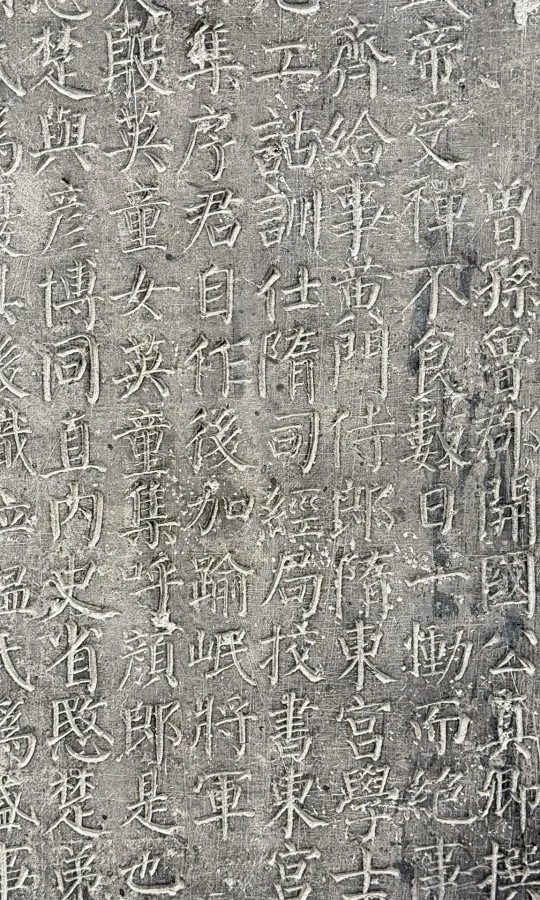 曾孫魯郡開國公真卿撰
帝受禪不食數日一慟而絕事
齊給事黃門侍郎隋東宮學士
工詁訓仕隋司經局挍書東宮
集序君自作後加踰岷將軍
殷英童女英童集呼顏郎是也
愍楚與彥博同直內史省愍楚弟